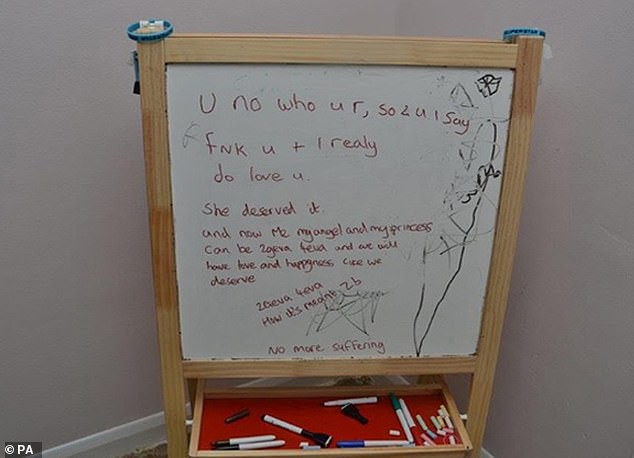 SUPERSTAR
U no who u r, so 2 u I say
fnk u + I realy
do love u.
She deserved it.
and now Me my angel and my princess
can be 2geva 4eva and we will
have love and happyness like we
deserve
2geva 4eva
How its meant 2 b
No more suffering
PA